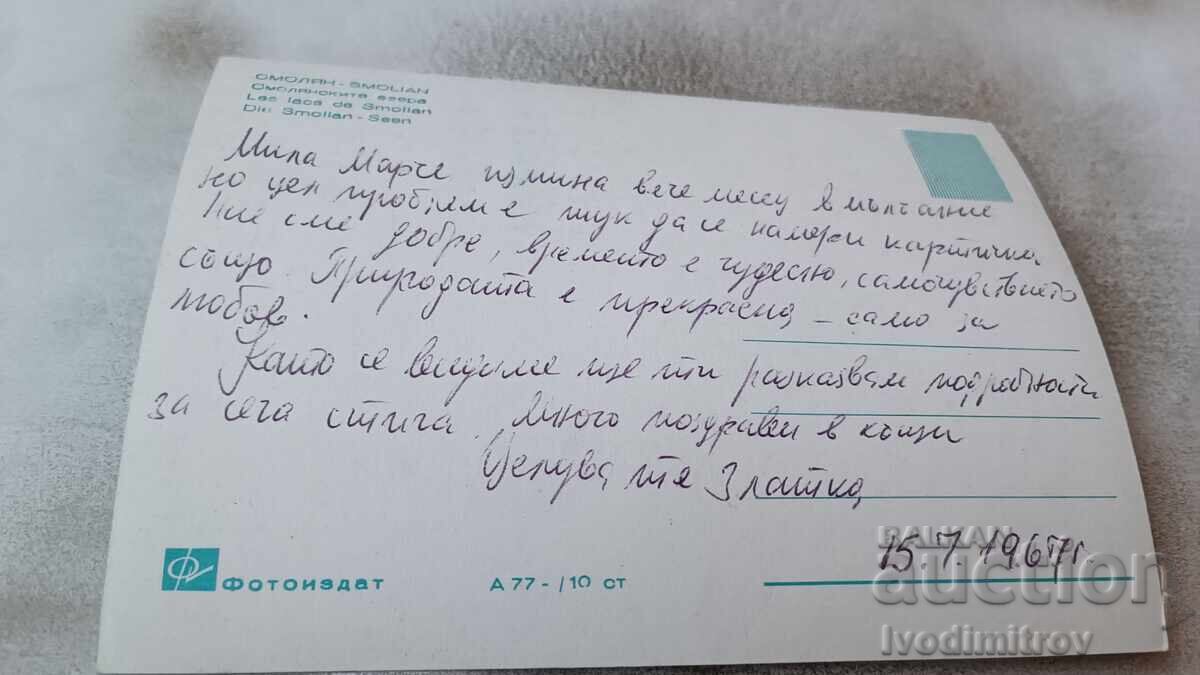 СМОЛЯН - SMOLIAN
Смолянските езера
Les lacs de Smolian
Die Smolian - Seen
Мила Марче измина вече месец в мълчание
но цял проблем е тук да се намери картичка
Ние сме добре, времето е чудесно, самочувствието
също. Природата е прекрасна - само за
любов.
Като се видиме ще ти разказвам подробности
за сега стига. Много поздрави в къщи
Целува те Златка
15.7.1967г.
Фотоиздат
А 77 - / 10 ст
BALKAN
auction
Ivodimitrov